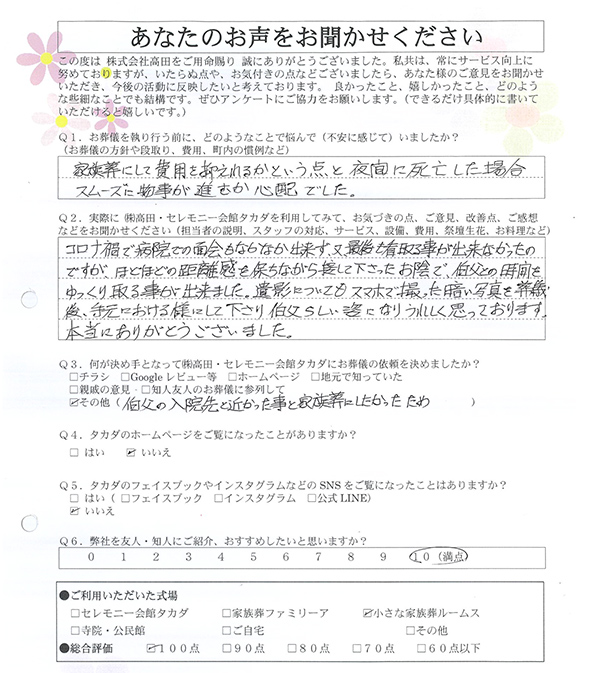 あなたのお声をお聞かせください
この度は 株式会社高田をご用命賜り 誠にありがとうございました。私共は、常にサービス向上に
努めておりますが、いたらぬ点や、お気付きの点などございましたら、あなた様のご意見をお聞かせ
いただき、今後の活動に反映したいと考えております。 良かったこと、嬉しかったこと、どのよう
な些細なことでも結構です。ぜひアンケートにご協力をお願いします。（できるだけ具体的に書いて
いただけると嬉しいです。）
Q１．お葬儀を執り行う前に、どのようなことで悩んで（不安に感じて）いましたか？
（お葬儀の方針や段取り、費用、町内の慣例など）
家族葬にして費用を抑えれるかという点と 夜間に死亡した場合
スムーズに物事が進むか心配でした。
Q２．実際に㈱高田・セレモニー会館タカダを利用してみて、お気づきの点、ご意見、改善点、ご感想
などをお聞かせください（担当者の説明、スタッフの対応、サービス、設備、費用、祭壇生花、お料理など）
コロナ禍で病院での面会もなかなか出来ず、又、最後も看取る事が出来なかったの
ですが ほどほどの距離感を保ちながら接して下さったお陰で、伯父との時間を
ゆっくり取る事が出来ました。遺影についてもスマホで撮った暗い写真を葬儀
後、手元における様にして下さり伯父らしい姿になりうれしく思っております。
本当にありがとうございました。
Q３．何が決め手となって㈱高田・セレモニー会館タカダにお葬儀の依頼を決めましたか？
□チラシ □Googleレビュー等 □ホームページ □地元で知っていた
□親戚の意見 □知人友人のお葬儀に参列して
☑その他（ 伯父の入院先と近かった事と家族葬にしたかったため ）
Q４．タカダのホームページをご覧になったことがありますか？
□ はい ☑ いいえ
Q５．タカダのフェイスブックやインスタグラムなどの SNS をご覧になったことはありますか？
□ はい（ □フェイスブック □インスタグラム □公式 LINE）
☑ いいえ
Q６．弊社を友人・知人にご紹介、おすすめしたいと思いますか？
０ １ ２ ３ ４ ５ ６ ７ ８ ９ １０（満点）
●ご利用いただいた式場
□セレモニー会館タカダ □家族葬ファミリーア ☑小さな家族葬ルームス
□寺院・公民館 □ご自宅 □その他
●総合評価 ☑１００点 □９０点 □８０点 □７０点 □６０点以下